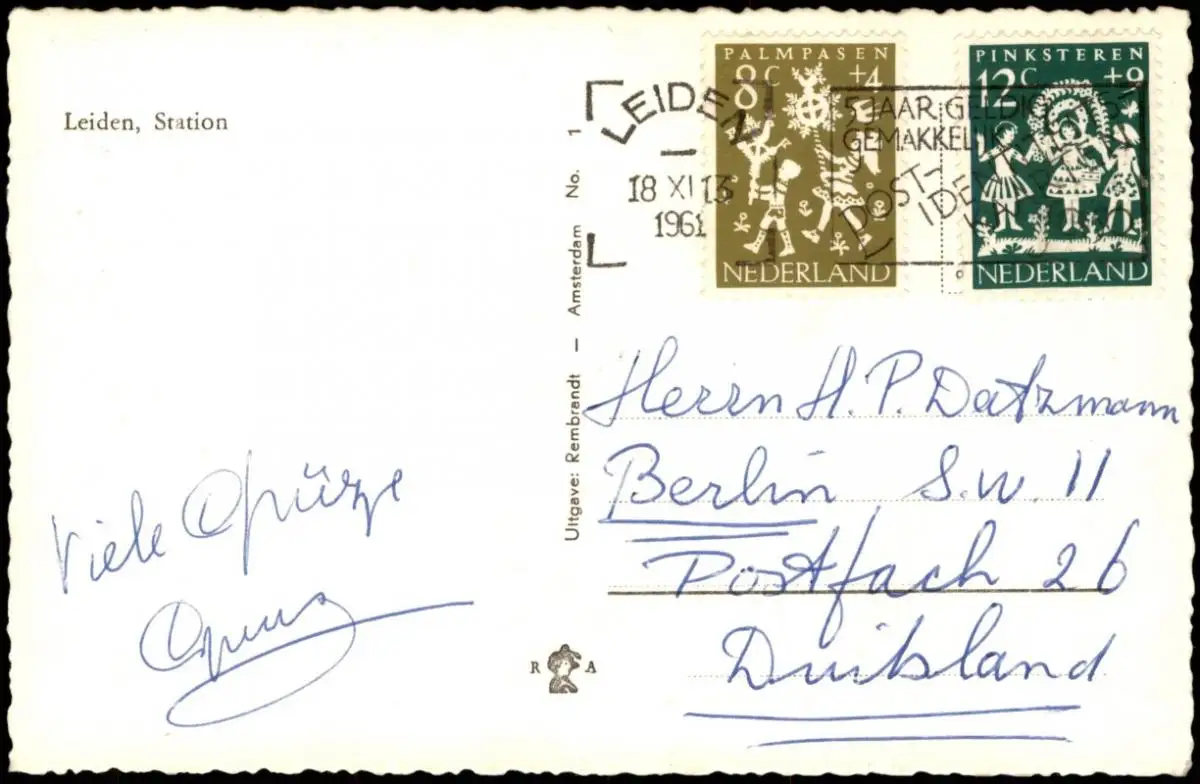 Leiden, Station
PALMPASEN
8c +4
NEDERLAND
PINKSTEREN
12c +9
NEDERLAND
LEIDEN
18 XI 13
1961
5 JAAR GELDIG
GEMAKKELIJK
POST-
IDEN
Uitgave: Rembrandt — Amsterdam No. 1
Herrn H. P. Datzmann
Berlin S.W. 11
Postfach 26
Duitsland
Viele Grüße
R A